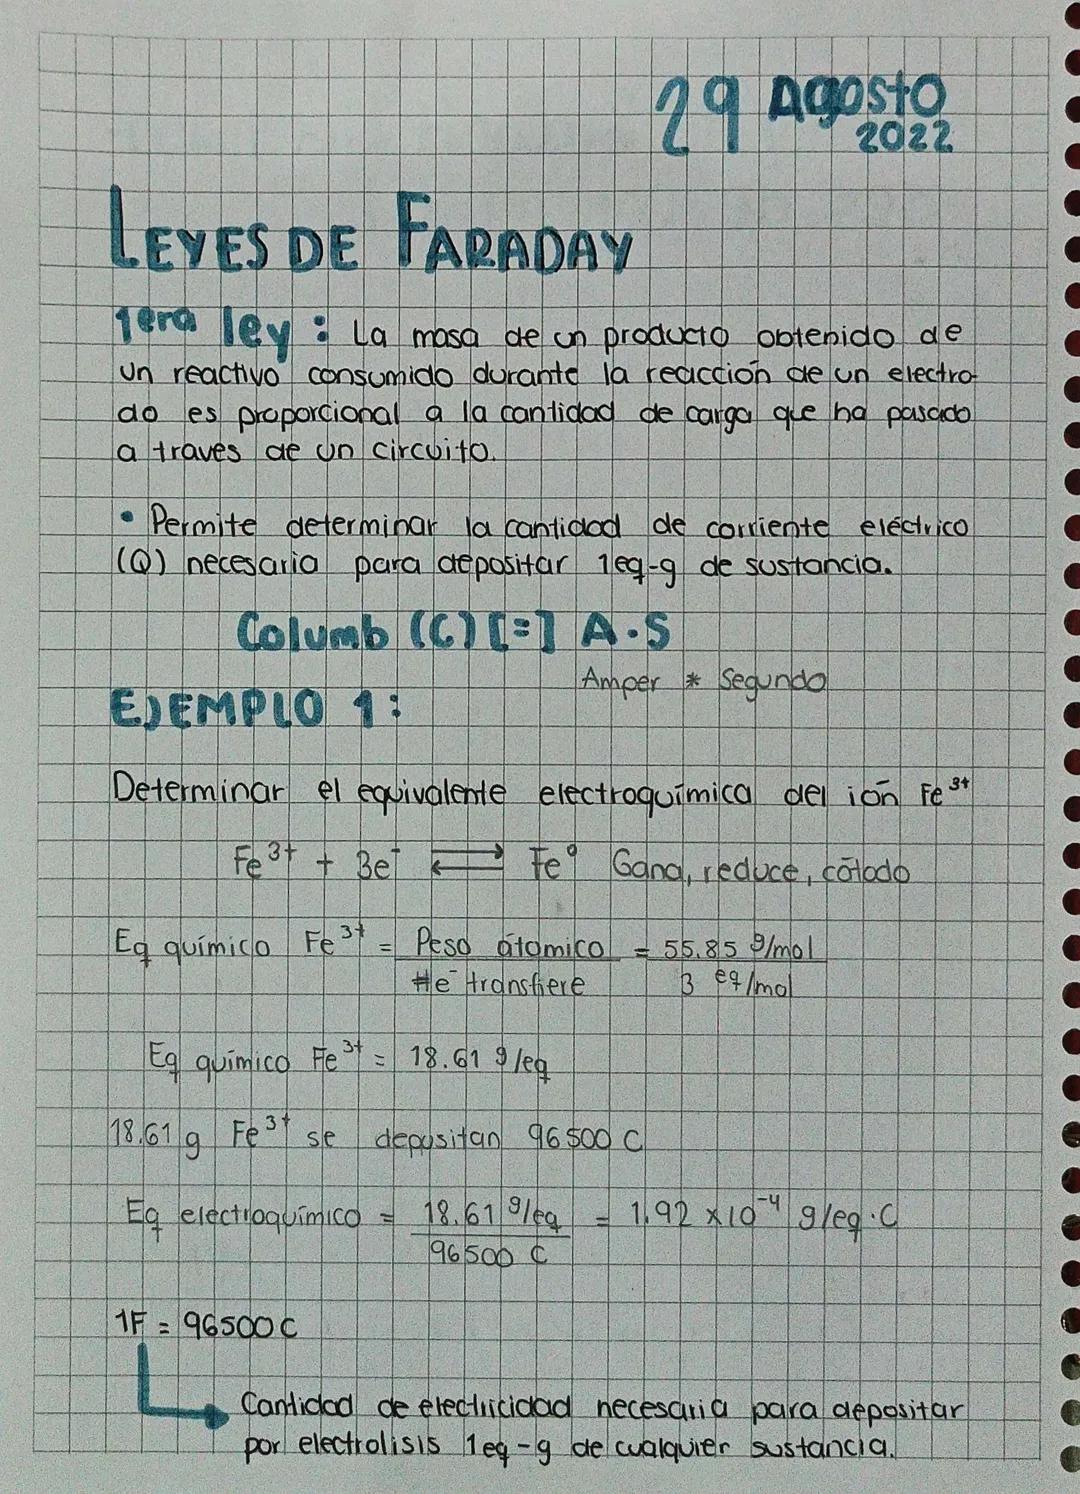 29 Agosto
2022
LEYES DE FARADAY
1era ley : La masa de un producto obtenido de
un reactivo consumido durante la reacción de un electro-
do es proporcional a la cantidad de carga que ha pasado
a traves de un circuito.
• Permite determinar la cantidad de corriente eléctrico
(Q) necesaria para depositar 1eq-g de sustancia.
Columb (C) [=] A·S
Amper * Segundo
EJEMPLO 1:
Determinar el equivalente electroquímica del ión Fe³⁺
Fe³⁺ + 3e⁻ ⇄ Fe⁰ Gana, reduce, cátodo
Eq químico Fe³⁺ = Peso átomico = 55.85 g/mol
#e⁻ transfiere 3 eq/mol
Eq químico Fe³⁺ = 18.61 g/eq
18.61 g Fe³⁺ se depositan 96500 C
Eq electroquímico = 18.61 g/eq = 1.92 x10⁻⁴ g/eq·C
96500 C
1F = 96500 C
Cantidad de electricidad necesaria para depositar
por electrolisis 1eq-g de cualquier sustancia.